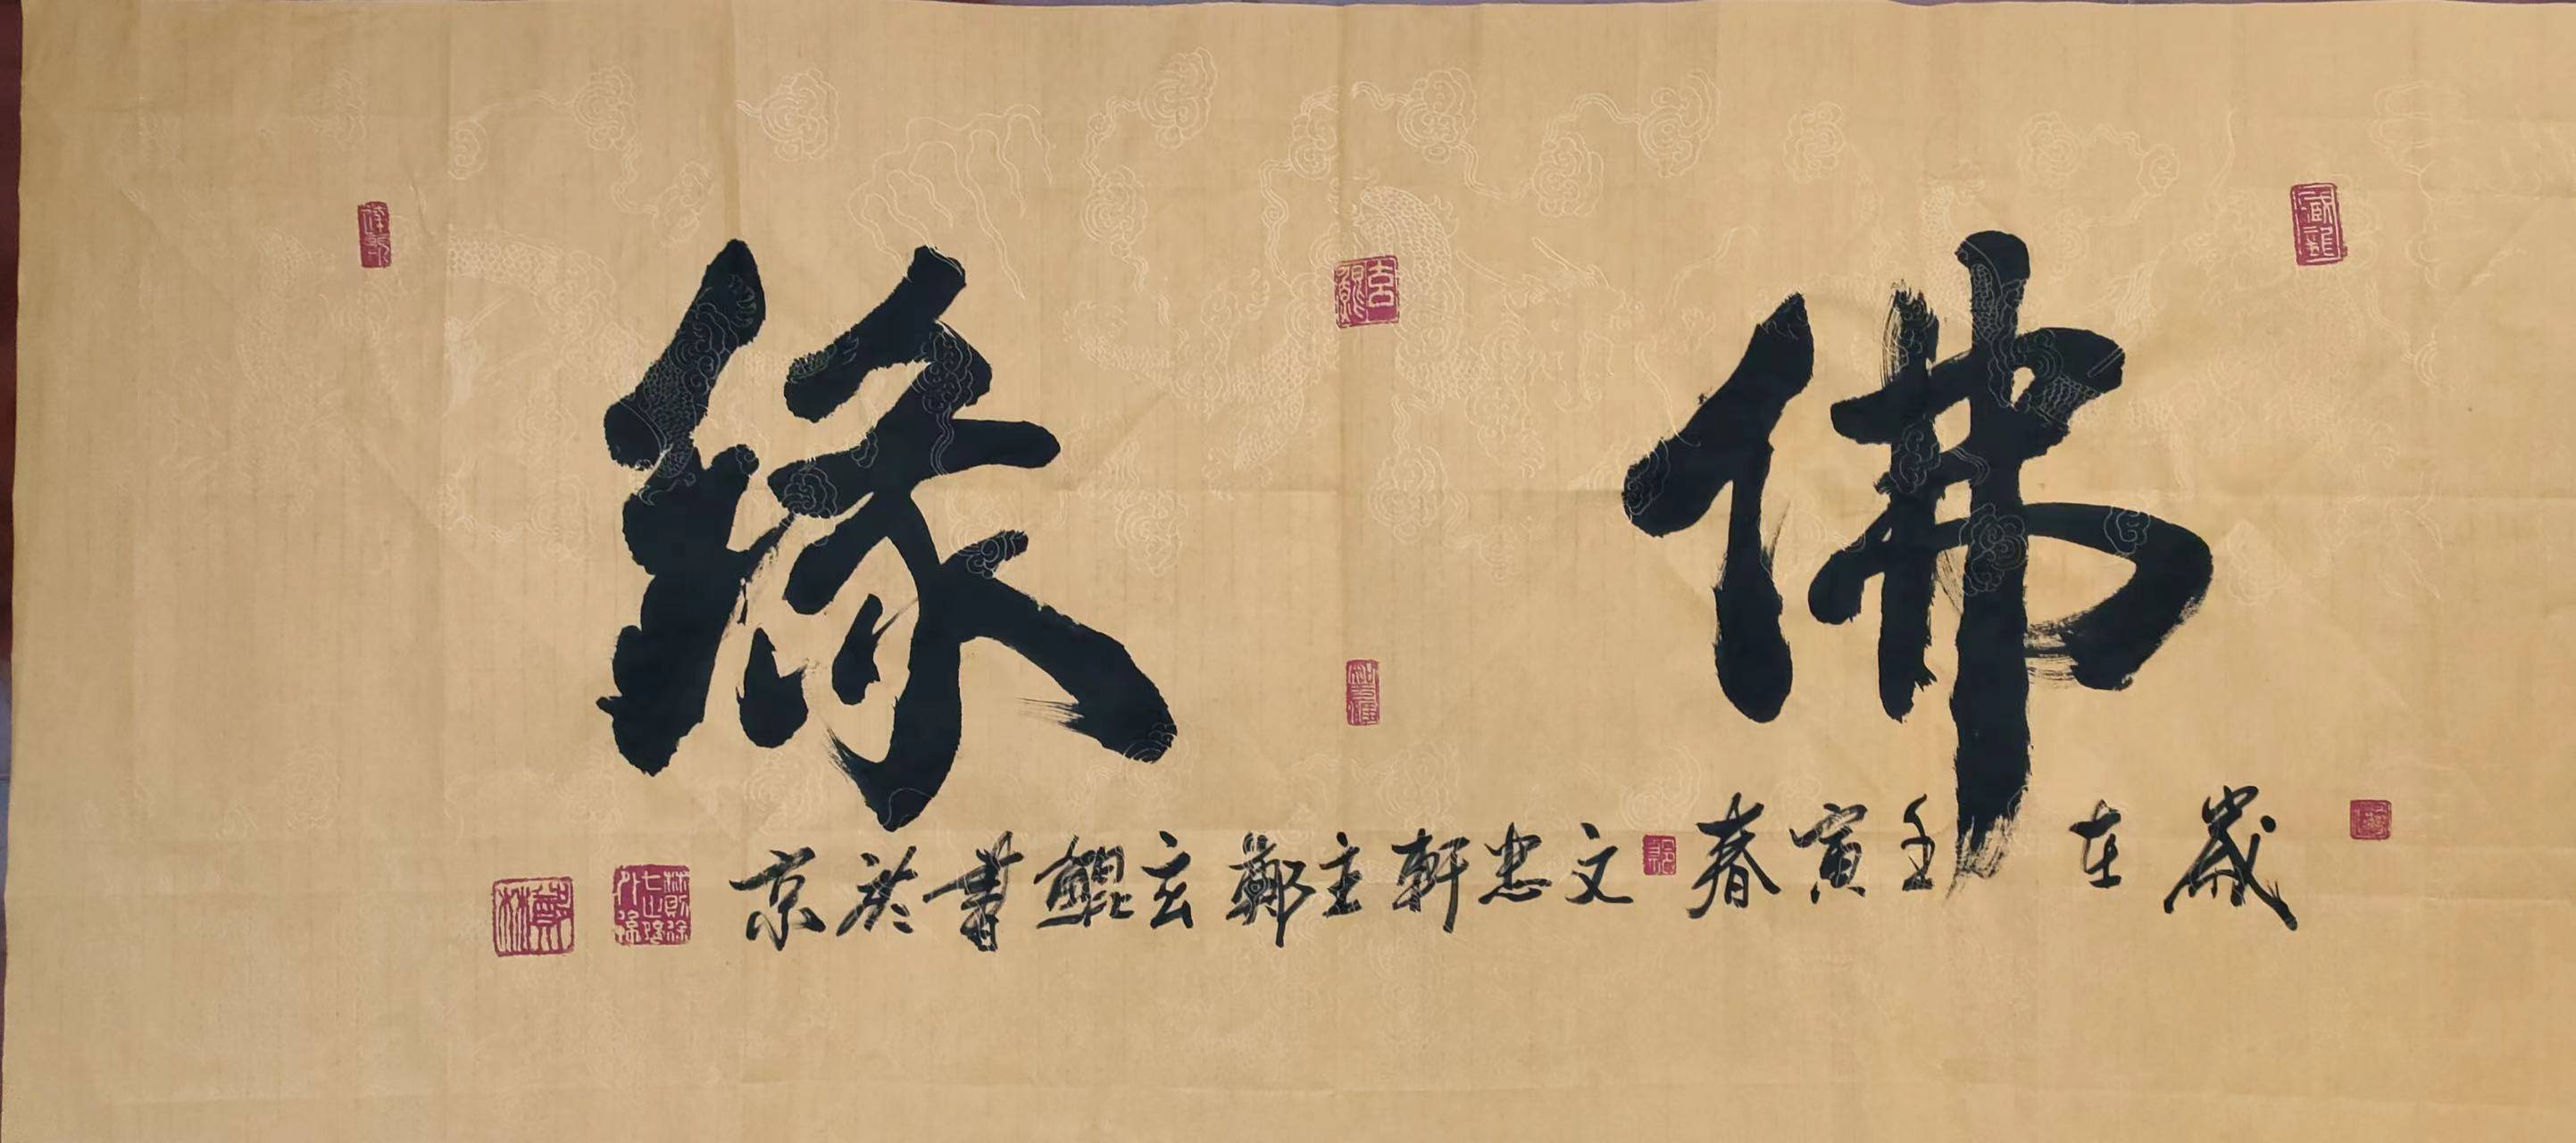 佛緣
歲在壬寅春文忠軒主鄭玄鯤書於京